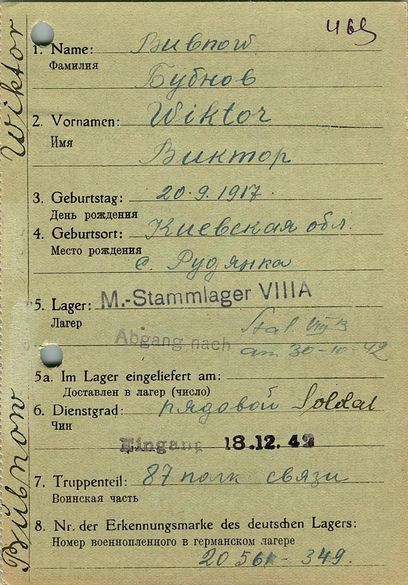 469
1. Name: Bubnow
Фамилия
Бубнов
2. Vornamen: Wiktor
Имя
Виктор
3. Geburtstag: 20.9.1917.
День рождения
4. Geburtsort: Киевская обл.
Место рождения
с. Рудянка
5. Lager: M.-Stammlager VIIIA
Лагер
Abgang nach Stal. VIII B
am 30-10-42
5a. Im Lager eingeliefert am:
Доставлен в лагер (число)
6. Dienstgrad: рядовой Soldat
Чин
Eingang 18.12.42
7. Truppenteil: 87 полк связи
Воинская часть
8. Nr. der Erkennungsmarke des deutschen Lagers:
Номер военнопленного в германском лагере
20561-349.
Bubnow Wiktor